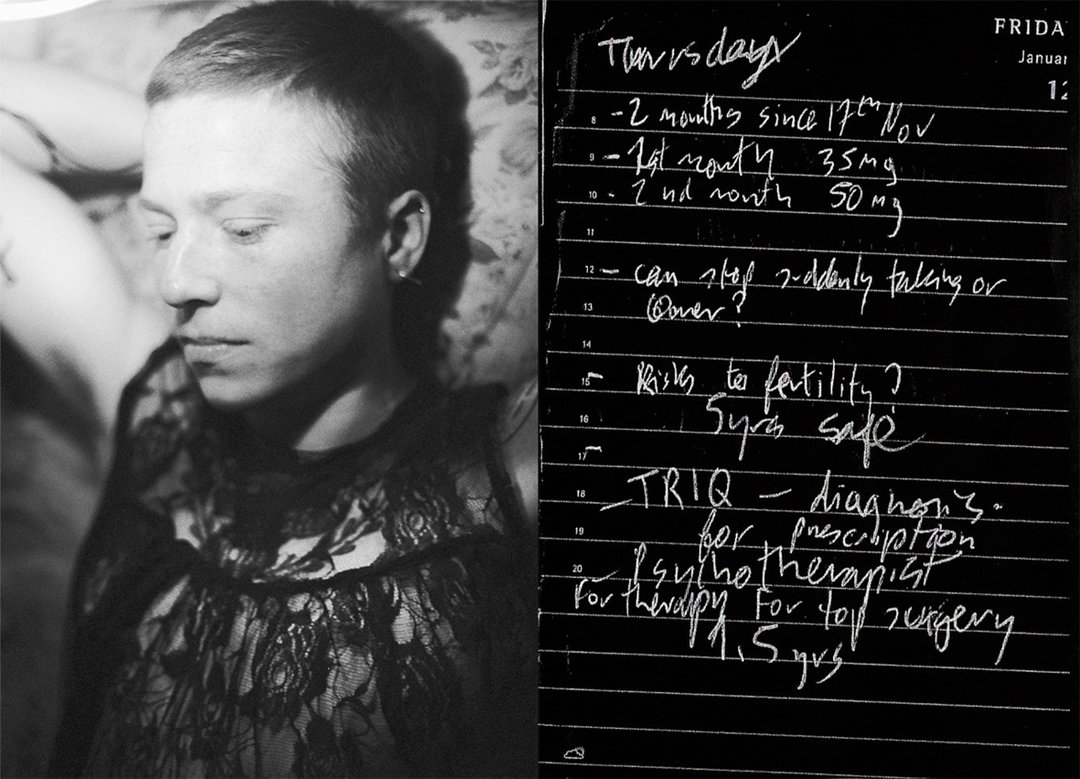 FRIDA
Januar
12
Thursday
8 - 2 months since 17th Nov
9 - 1st month 35mg
10 - 2nd month 50mg
11
12 - can stop suddenly taking or
13
14
15 - Risks to fertility?
16 5yrs safe
17 -
18 - TRIQ - diagnosis.
19 for prescription
20 - Psychotherapist
For therapy For top surgery
1.5 yrs